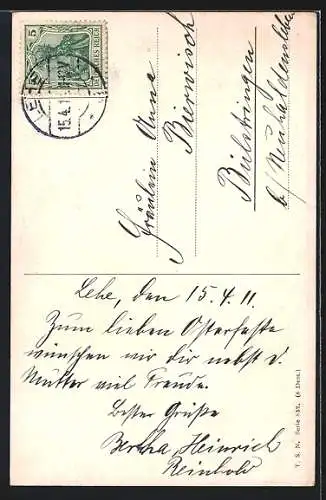 5
REICH
LEHE
15.4.11
Fräulein Anna
Bierwisch
Bülstringen
b/Neuhaldensleben
Lehe, den 15.4.11.
Zum lieben Osterfeste
wünschen wir dir nebst d.
Mutter viel Freude.
Bester Grüße
Bertha, Heinrich
Reinhold
T. S. N. Serie (6 Dess.)